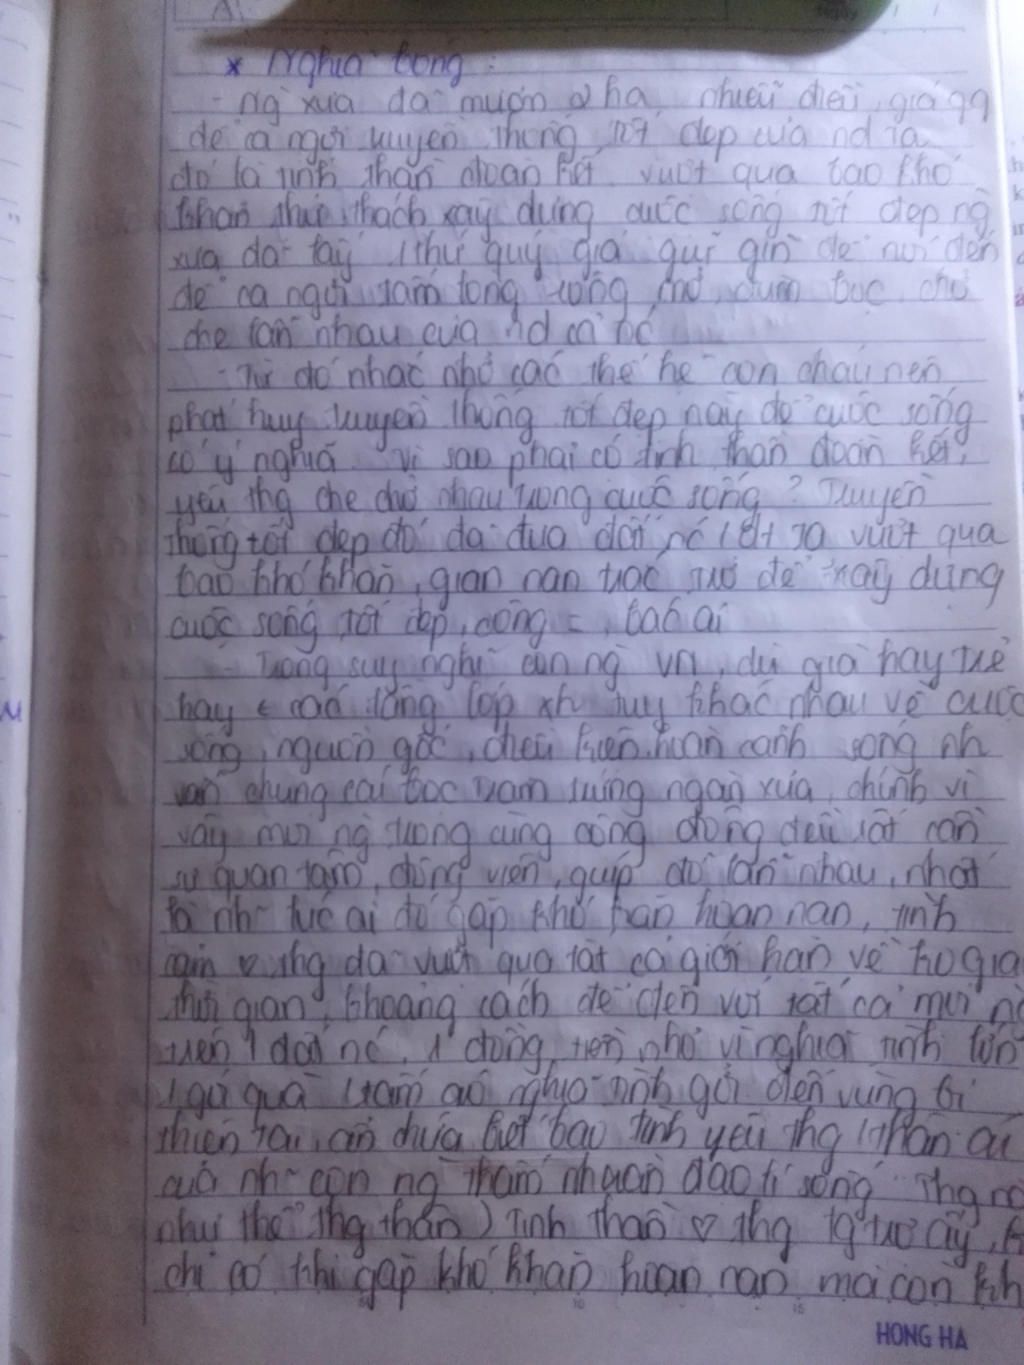 * Nghĩa bóng :
- ng xưa đã mượn h/ả nhiều điều, giá gg
để ca ngợi truyền thống tốt đẹp của nd ta
đó là tinh thần đoàn kết vượt qua bao khó
khăn thử thách xây dựng cuộc sống tốt đẹp ng
xưa đã lấy 1 thứ quý giá giữ gìn để nói đến
để ca ngợi tấm lòng rộng mở đùm bọc chở
che lẫn nhau của nd cả nc
- Từ đó nhắc nhở các thế hệ con cháu nên
phát huy truyền thống tốt đẹp này để cuộc sống
có ý nghĩa vì sao phải có tinh thần đoàn kết,
yêu thg che chở nhau trong cuộc sống ? Truyền
thống tốt đẹp đó đã đưa đất nc ta vượt qua
bao khó khăn, gian nan trắc trở để xây dựng
cuộc sống tốt đẹp, công =, bác ái
- Trong suy nghĩ con ng VN, dù già hay trẻ
hay các tầng lớp xh tuy khác nhau về cuộc
sống, nguồn gốc, điều kiện hoàn cảnh sống nh
vẫn chung cái bọc trăm trứng ngàn xưa, chính vì
vậy mọi ng trong cùng cộng đồng đều rất cần
sự quan tâm, động viên, giúp đỡ lẫn nhau, nhất
là nh~ lúc ai đó gặp khó khăn hoạn nạn, tình
cảm ♡ thg đã vượt qua tất cả giới hạn về ko gia
thời gian, khoảng cách để đến với tất cả mọi ng
trên đất nc. 1 đồng tiền nhỏ vì nghĩa tình lớn
1 gói quà 1 tấm áo nghĩa tình gửi đến vùng bị
thiên tai, ẩn chứa biết bao tình yêu thg thân ái
của nh~ con ng thấm nhuần đạo lí sống "Thg ng
như thể thg thân) Tinh thần ♡ thg tg trợ ấy, k
chỉ có khi gặp khó khăn hoạn nạn mà còn kh
HONG HA